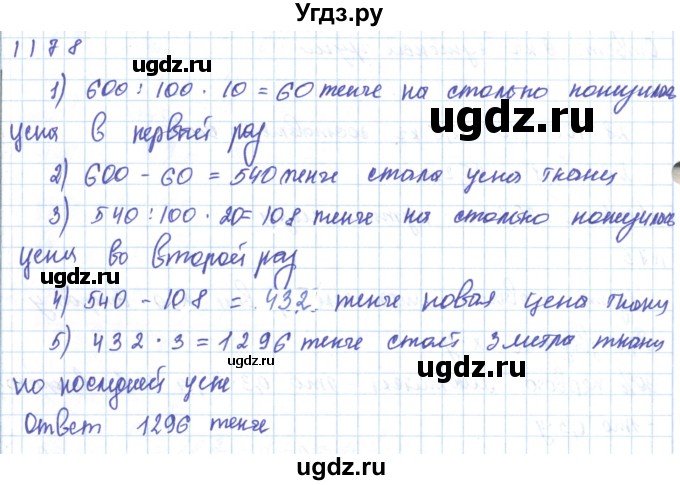 Угдз.ру
1178
1) 600 : 100 · 10 = 60 тенге на столько понизилась
цена в первый раз
2) 600 - 60 = 540 тенге стала цена ткани
3) 540 : 100 · 20 = 108 тенге на столько понизилась
цена во второй раз
4) 540 - 108 = 432 тенге новая цена ткани
5) 432 · 3 = 1296 тенге стоят 3 метра ткани
по последней цене
Ответ 1296 тенге
ugdz.ru
ugdz.ru
ugdz.ru
ugdz.ru
ugdz.ru
ugdz.ru
ugdz.ru